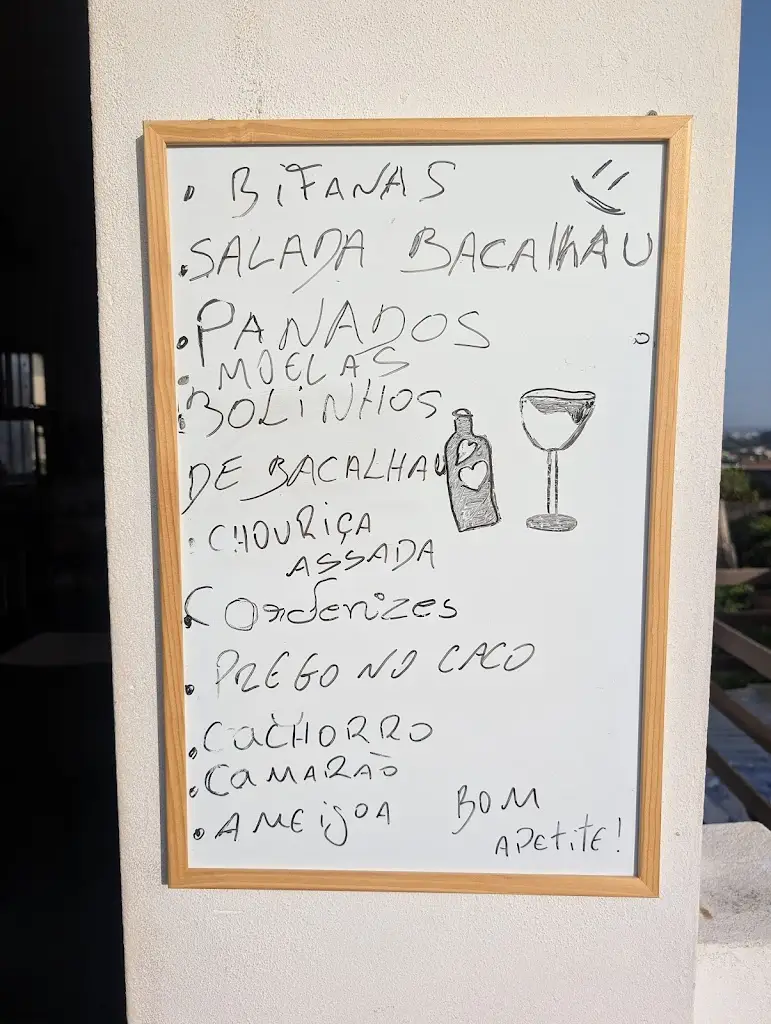 • BiFANAS
• SALADA BACAlhAU
• PANADOS
• MOELAS
• BOLiNHOS
DE BACALHAU
• CHOURIÇA
ASSADA
• Cordenizes
• PREGO NO CACO
• CaCHORRO
• CaMARÃO
• AMEijOA
BOM
APEtitE!